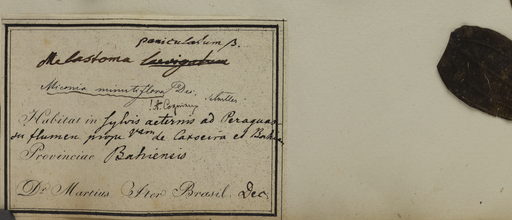 paniculatum β.
Melastoma laevigatum
Miconia minutiflora Dec.
! A. Cogniaux
Habitat in Sylvis aeternis ad Peraguas-
su flumen prope Vam de Caxoeira et Bahia
Provinciae Bahiensis
Dr. Martius Iter Brasil. Dec.